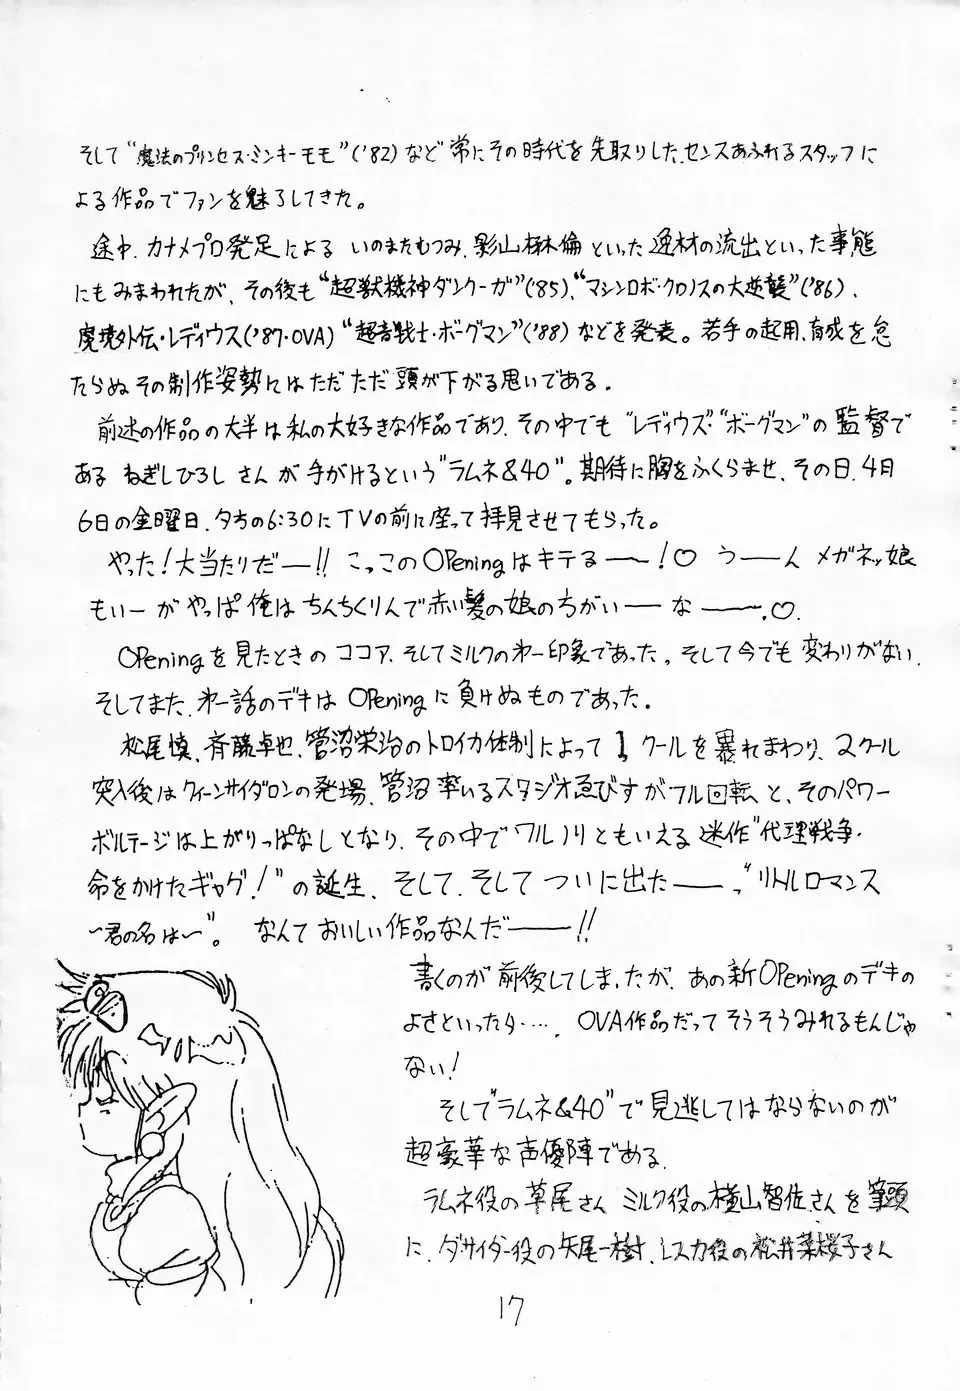 そして“魔法のプリンセス・ミンキーモモ”('82)など常にその時代を先取りした、センスあふれるスタッフに
よる作品でファンを魅了してきた。
途中、カナメプロ発足による いのまたむつみ、影山楙倫といった逸材の流出といった事態
にもみまわれたが、その後も“超獣機神ダンクーガ”('85)、“マシンロボ・クロノスの大逆襲”('86)、
魔境外伝・レディウス('87・OVA)“超音戦士・ボーグマン”('88)などを発表。若手の起用、育成を怠
たらぬその制作姿勢にはただただ頭が下がる思いである。
前述の作品の大半は私の大好きな作品であり、その中でも“レディウス”“ボーグマン”の監督で
ある ねぎしひろし さんが手がけるという“ラムネ&40”。期待に胸をふくらませ、その日、4月
6日の金曜日、夕方の6:30にTVの前に座って拝見させてもらった。
やった!大当たりだー!! こっこのOPeningはキテるー!♡ うーん メガネッ娘
もいーが やっぱ俺はちんちくりんで赤い髪の娘の方がいーなー。♡
OPeningを見たときのココア、そしてミルクの㐧一印象であった。そして今でも変わりがない。
そしてまた、㐧一話のデキはOPeningに負けぬものであった。
松尾慎、斉藤卓也、管沼栄治のトロイカ体制によって1クールを暴れまわり、2クール
突入後はクィーンサイダロンの発場、管沼率いるスタジオゑびすがフル回転と、そのパワー
ボルテージは上がりっぱなしとなり、その中でワルノリともいえる迷作“代理戦争・
命をかけたギャグ!”の誕生、そして、そしてついに出たーっ“リトルロマンス
〜君の名は〜”。なんておいしい作品なんだー!!
書くのが前後してしまったが、あの新OPeningのデキの
よさといったら‥‥、OVA作品だってそうそうみれるもんじゃ
ない!
そして“ラムネ&40”で見逃してはならないのが
超豪華な声優陣である。
ラムネ役の草尾さん ミルク役の横山智佐さんを筆頭
に、ダサイダー役の矢尾一樹、レスカ役の松井菜桜子さん
17